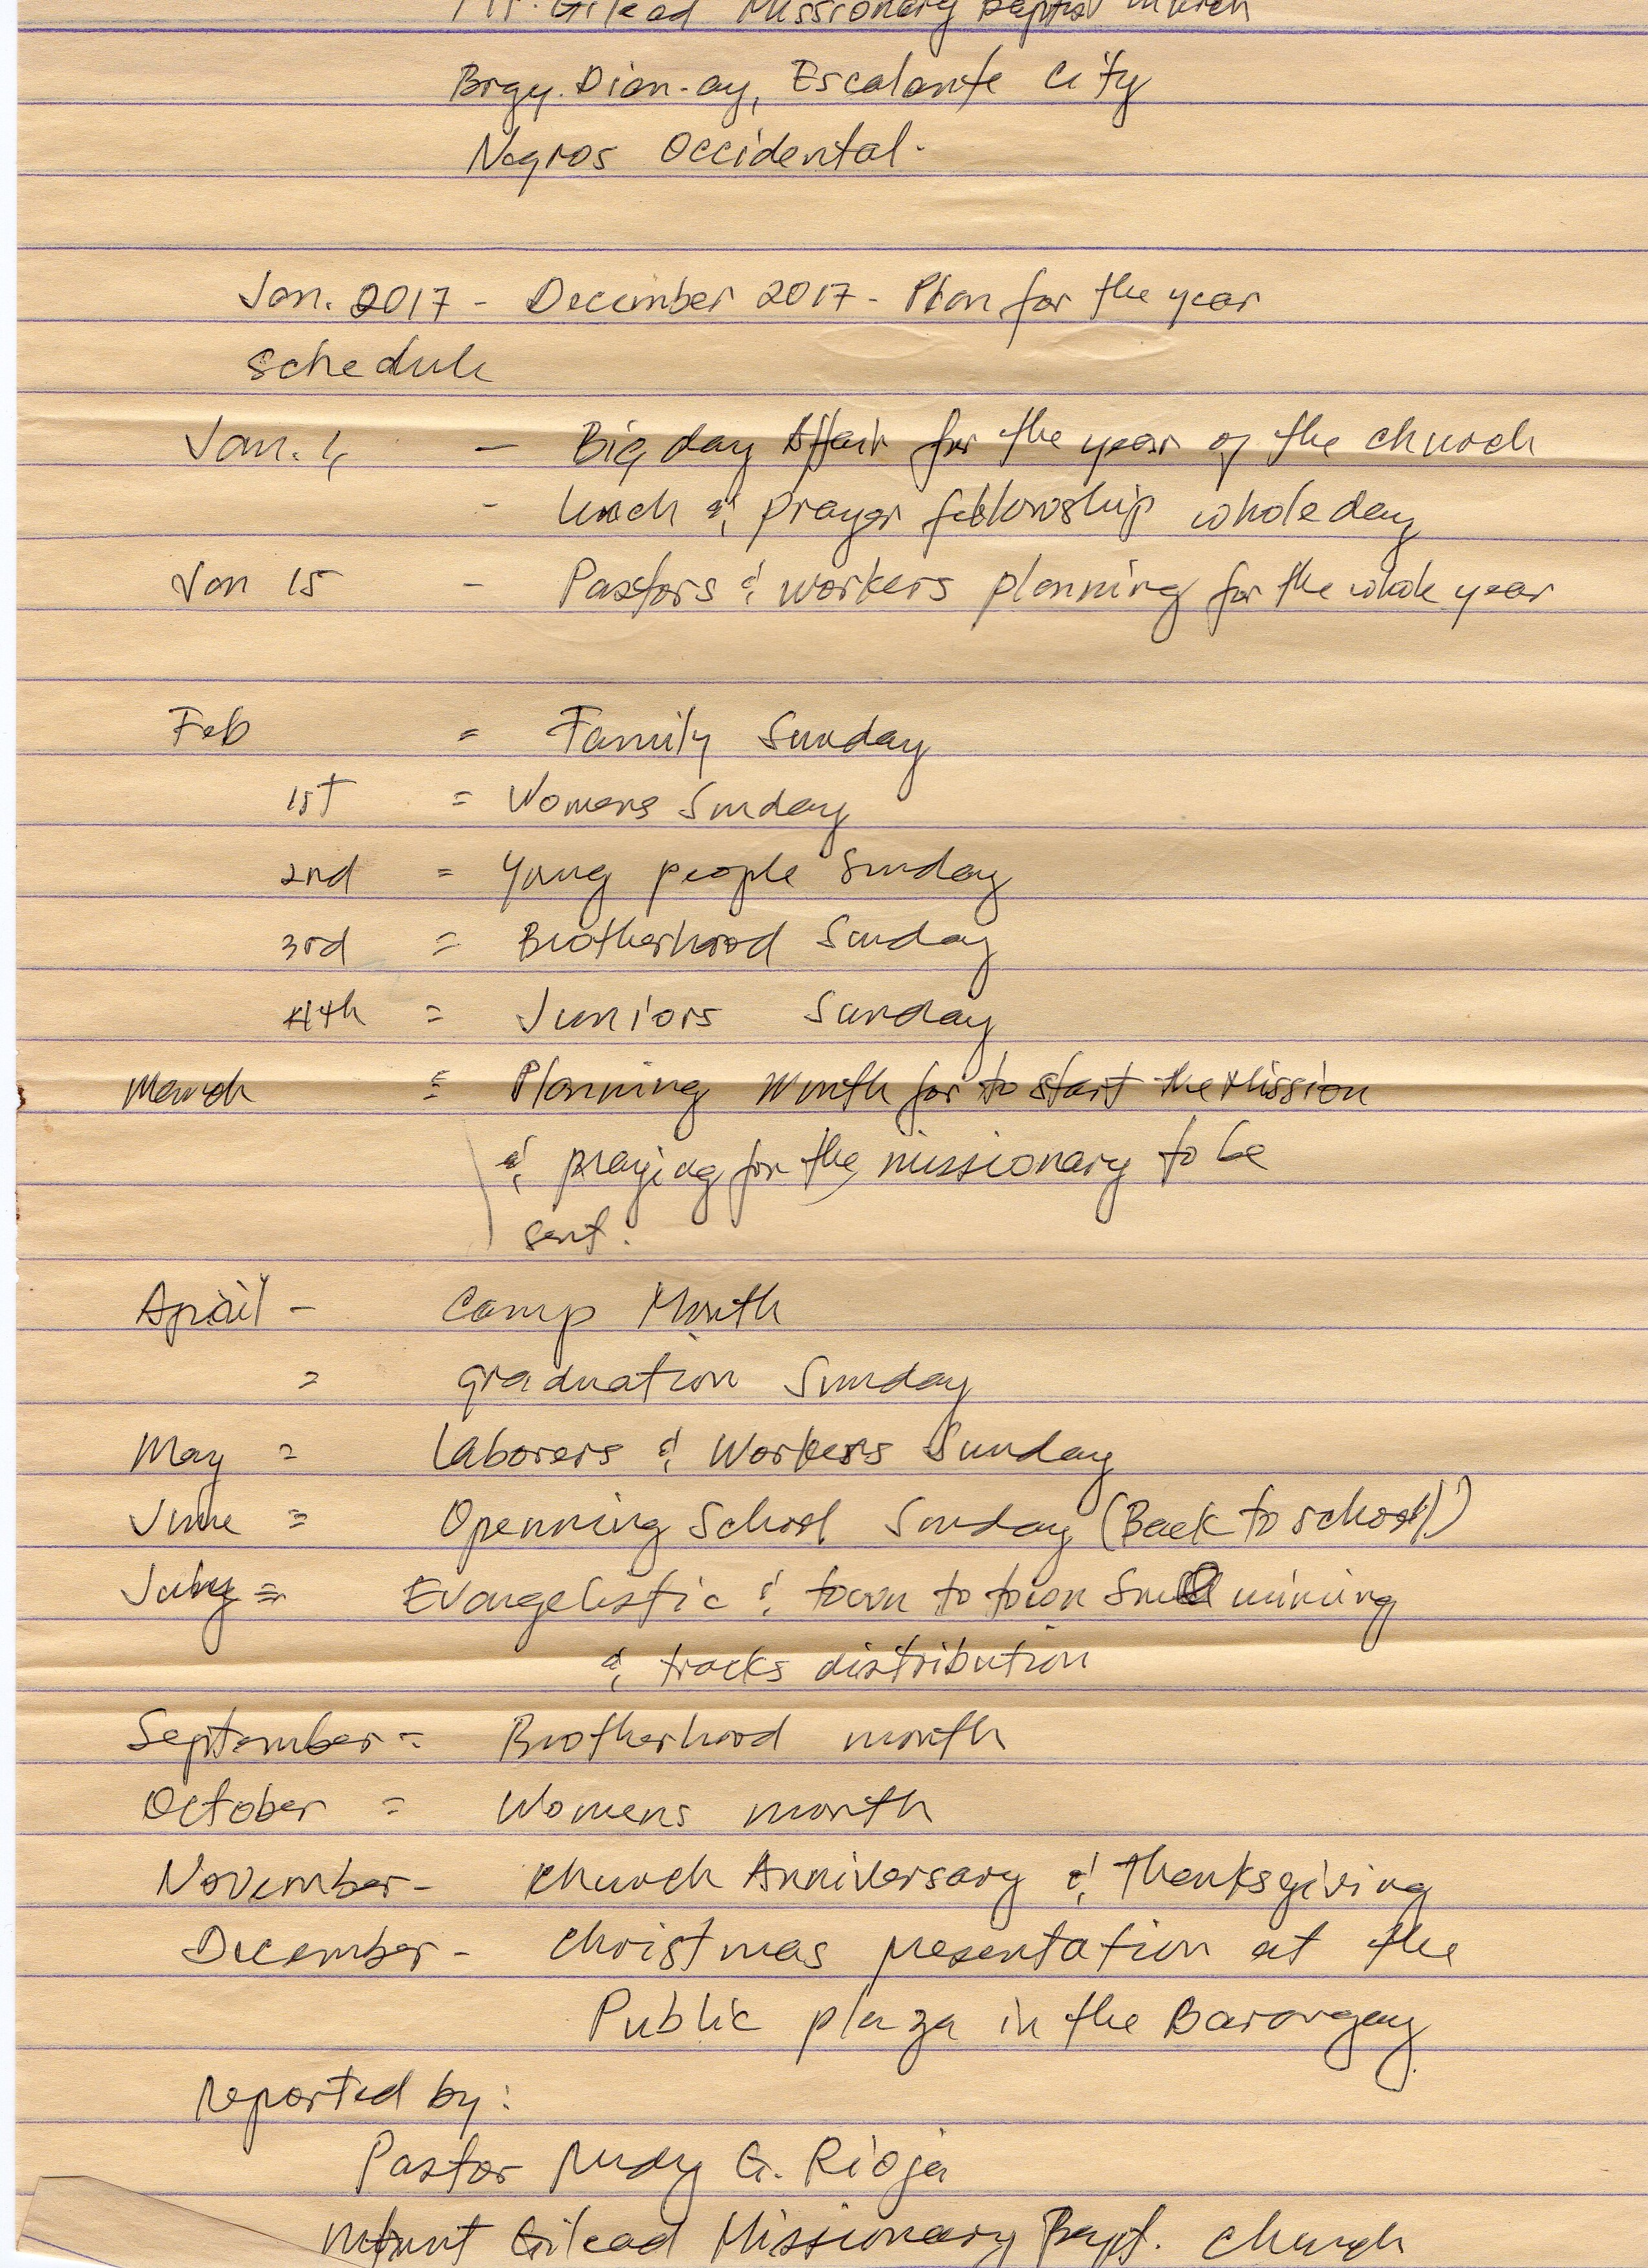 Mt. Gilead Missionary Baptist church
Brgy. Dian-ay, Escalante City
Negros Occidental.
Jan. 2017 - December 2017 - Plan for the year
schedule
Jan. 1, - Big day Affair for the year of the church
- lunch & prayer fellowship whole day
Jan 15 - Pastors & workers planning for the whole year
Feb = Family Sunday
1st = Womens Sunday
2nd = Young people Sunday
3rd = Brotherhood Sunday
4th = Juniors Sunday
March = Planning Month for to start the Mission
& praying for the missionary to be
sent.
April - Camp Month
= graduation Sunday
May = Laborers & Workers Sunday
June = Openning School Sunday (Back to school)
July = Evangelistic & town to town Soul wining
& tracks distribution
September = Brotherhood month
October = Womens month
November - church Anniversary & thanksgiving
December - christmas presentation at the
Public plaza in the Barangay.
reported by:
Pastor Rudy G. Rioja
Mount Gilead Missionary Bapt. church